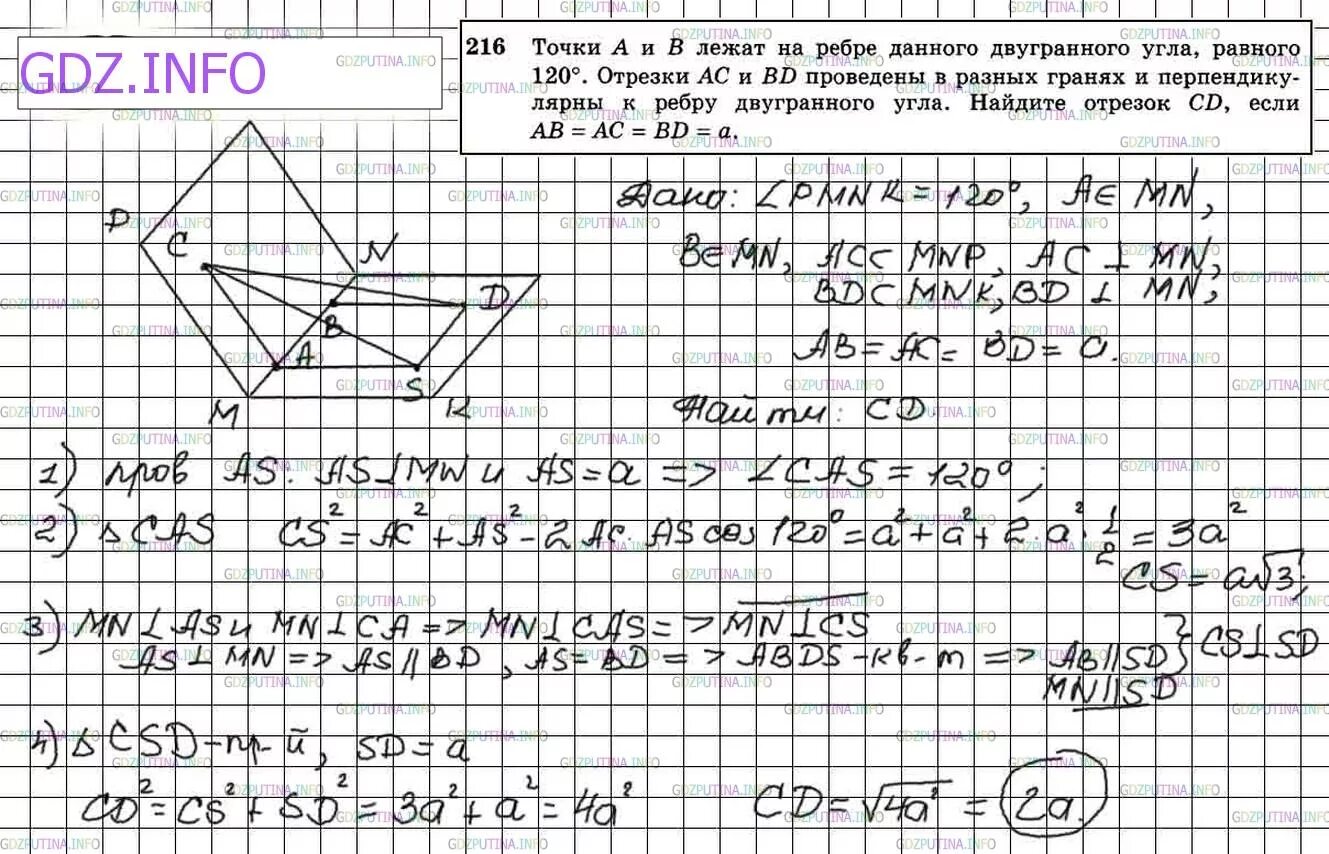 GDZ.INFO
216 Точки A и B лежат на ребре данного двугранного угла, равного
120°. Отрезки AC и BD проведены в разных гранях и перпендику-
лярны к ребру двугранного угла. Найдите отрезок CD, если
AB = AC = BD = a.
P
C
N
D
B
A
S
M
K
Дано: ∠PMNK = 120°, A∈ MN,
B∈MN, AC⊂ MNP, AC ⊥ MN,
BD⊂ MNK, BD ⊥ MN;
AB = AC = BD = a.
Найти: CD
1) пров AS: AS⊥MN и AS = a => ∠CAS = 120°;
2) ΔCAS CS² = AC² + AS² - 2 AC· AS cos 120° = a² + a² + 2·a²· 1/2 = 3a²
CS = a√3;
3) MN⊥AS и MN⊥CA => MN⊥CAS => MN⊥CS
AS⊥MN => AS || BD, AS = BD => ABDS - кв-т => AB||SD } CS⊥SD
MN||SD
4) ΔCSD - пр-й, SD = a
CD² = CS² + SD² = 3a² + a² = 4a² CD = √4a² = 2a.
GDZPUTINA.INFO